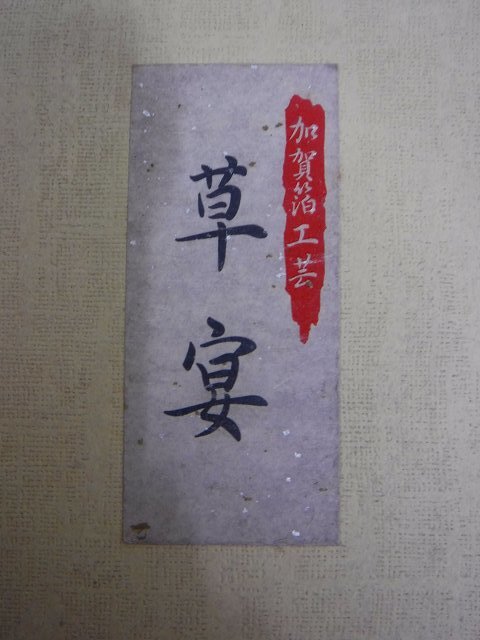 加賀箔工芸
草宴